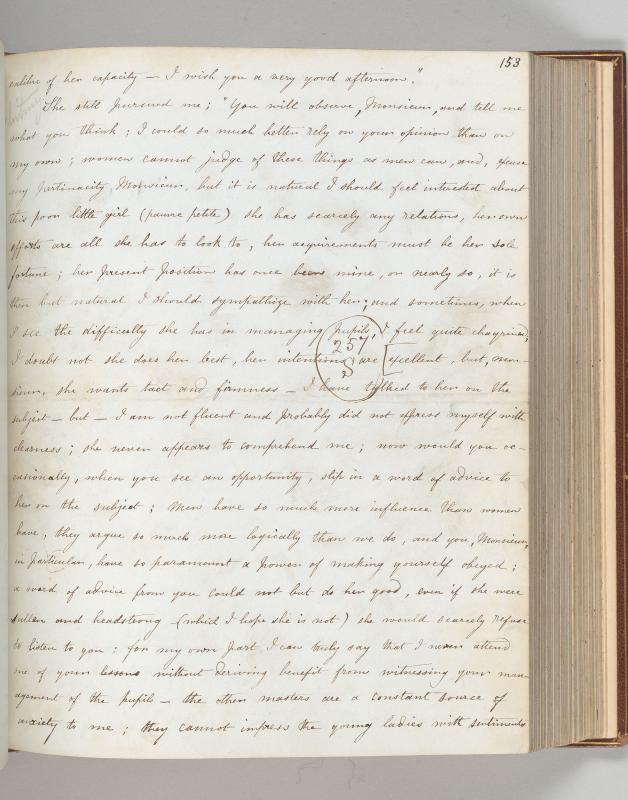 153
calibre of her capacity — I wish you a very good afternoon."
She still pursued me; "You will observe, Monsieur, and tell me
what you think; I could so much better rely on your opinion than on
my own; women cannot judge of these things as men can, and, excuse
my pertinacity, Monsieur, but it is natural I should feel interested about
this poor little girl (pauvre petite) she has scarcely any relations, her own
efforts are all she has to look to, her acquirements must be her sole
fortune; her present position has once been mine, or nearly so, it is
then but natural I should sympathize with her; and sometimes, when
I see the difficulty she has in managing pupils, I feel quite chagrined,
I doubt not she does her best, her intentions are [excellent, but, mon-
257
S
sieur, she wants tact and firmness — I have talked to her on the
subject — but — I am not fluent and probably did not express myself with
clearness; she never appears to comprehend me; now would you oc-
casionally, when you see an opportunity, slip in a word of advice to
her on the subject; men have so much more influence than women
have, they argue so much more logically than we do, and you, Monsieur,
in particular, have so paramount a power of making yourself obeyed;
a word of advice from you could not but do her good, even if she were
sullen and headstrong — (which I hope she is not) she would scarcely refuse
to listen to you: for my own part, I can truly say that I never attend
one of your lessons without deriving benefit from witnessing your man-
agement of the pupils — the other masters are a constant source of
anxiety to me; they cannot impress the young ladies with sentiments